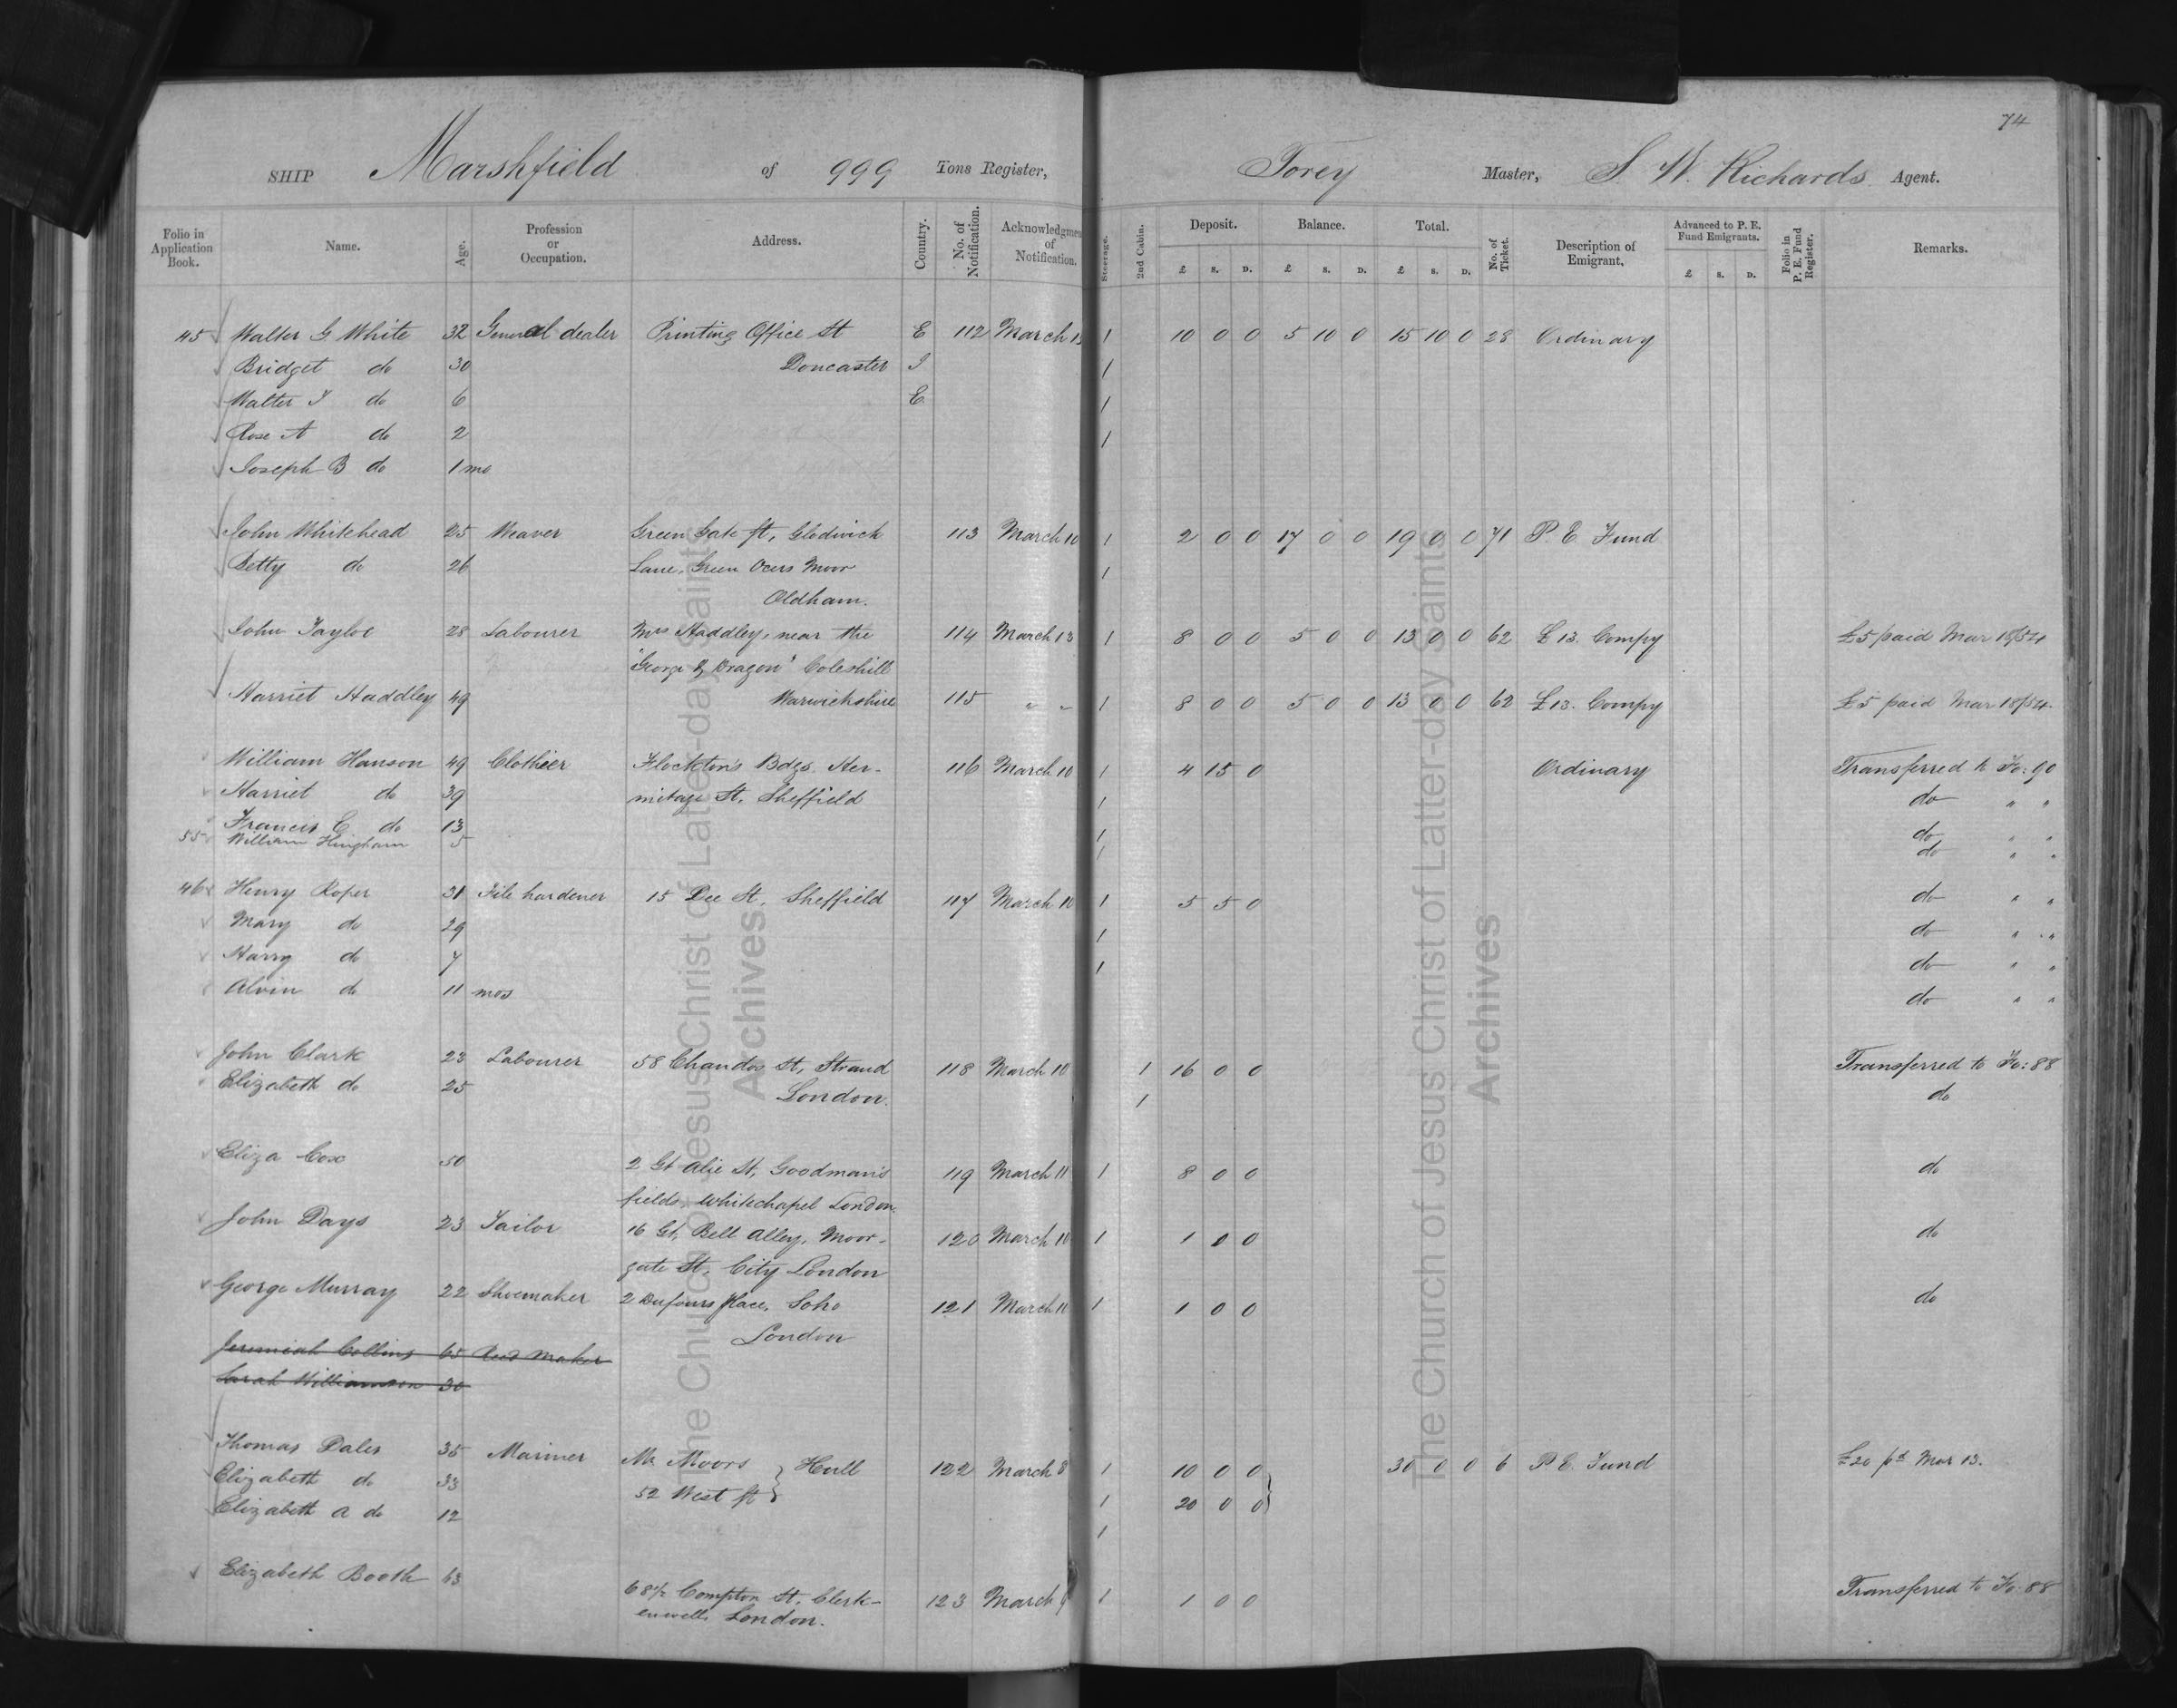 74
SHIP Marshfield of 999 Tons Register, Torey Master, S. W. Richards Agent.
Folio in Application Book. Name. Age. Profession or Occupation. Address. Country. No. of Notification. Acknowledgment of Notification. Steerage. 2nd Cabin. Deposit. Balance. Total. No. of Ticket. Description of Emigrant. Advanced to P. E. Fund Emigrants. Folio in P. E. Fund Register. Remarks.
£ S. D. £ S. D. £ S. D. £ S. D.
45 Walter G White 32 General dealer Printing Office St E 112 March 1 10 0 0 5 10 0 15 10 0 28 Ordinary
Bridget do 30 Doncaster I 1
Walter J do 6 E 1
Rose A do 2 1
Joseph B do 1 mo
John Whitehead 25 Weaver Green Gate St, Glodwick 113 March 10 1 2 0 0 17 0 0 19 0 0 71 P. E. Fund
Betty do 26 Lane, Green Acers Moor 1
Oldham.
John Taylor 28 Labourer Mrs Haddley, near the 114 March 13 1 8 0 0 5 0 0 13 0 0 62 £13. Compy £5 paid Mar 18/54
"George & Dragon" Coleshill
Harriet Haddley 49 Warwickshire 115 " " 1 8 0 0 5 0 0 13 0 0 62 £13. Compy £5 paid Mar 18/54.
William Hanson 49 Clothier Flockton's Bdgs. Her- 116 March 10 1 4 15 0 Ordinary Transferred to Fo: 90
Harriet do 39 mitage St, Sheffield 1 do " "
Francis C do 13 1 do " "
55 William Hingham 5 1 do " "
46 Henry Roper 31 File hardener 15 Dee St, Sheffield 117 March 10 1 5 5 0 do " "
Mary do 29 1 do " "
Harry do 7 1 do " "
Alvin do 11 mos do " "
John Clark 23 Labourer 58 Chandos St, Strand 118 March 10 1 16 0 0 Transferred to Fo: 88
Elizabeth do 25 London. 1 do
Eliza Cox 50 2 Gt Alie St, Goodman's 119 March 11 1 8 0 0 do
fields, Whitechapel London.
John Days 23 Tailor 16 Gt, Bell Alley, Moor- 120 March 10 1 1 0 0 do
gate St. City London
George Murray 22 Shoemaker 2 Dufours Place, Soho 121 March 10 1 1 0 0 do
London
Jeremiah Collins 65 Reed Maker
Sarah Williamson 30
Thomas Dales 35 Mariner Mr Moors } Hull 122 March 8 1 10 0 0 30 0 0 6 P E. Fund £20 pd Mar 13.
Elizabeth do 33 52 West St 1 20 0 0
Elizabeth A do 12 1
Elizabeth Booth 63 68½ Compton St, Clerk- 123 March 9 1 1 0 0 Transferred to Fo. 88
enwell, London.
The Church of Jesus Christ of Latter-day Saints
Archives
The Church of Jesus Christ of Latter-day Saints
Archives